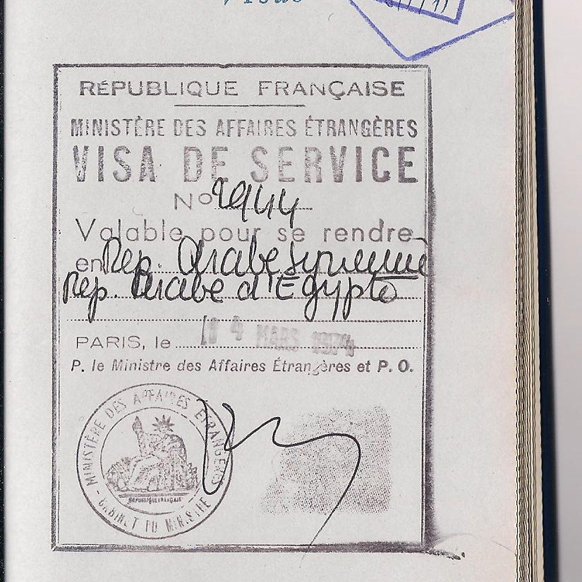 Visas
RÉPUBLIQUE FRANÇAISE
MINISTÈRE DES AFFAIRES ÉTRANGÈRES
VISA DE SERVICE
N° 2944
Valable pour se rendre
en Rep. Arabe syrienne
Rep. Arabe d'Egypte
PARIS, le 4 MARS 1974
P. le Ministre des Affaires Étrangères et P. O.
MINISTÈRE DES AFFAIRES ÉTRANGÈRES
RÉPUBLIQUE FRANÇAISE
CABINET DU